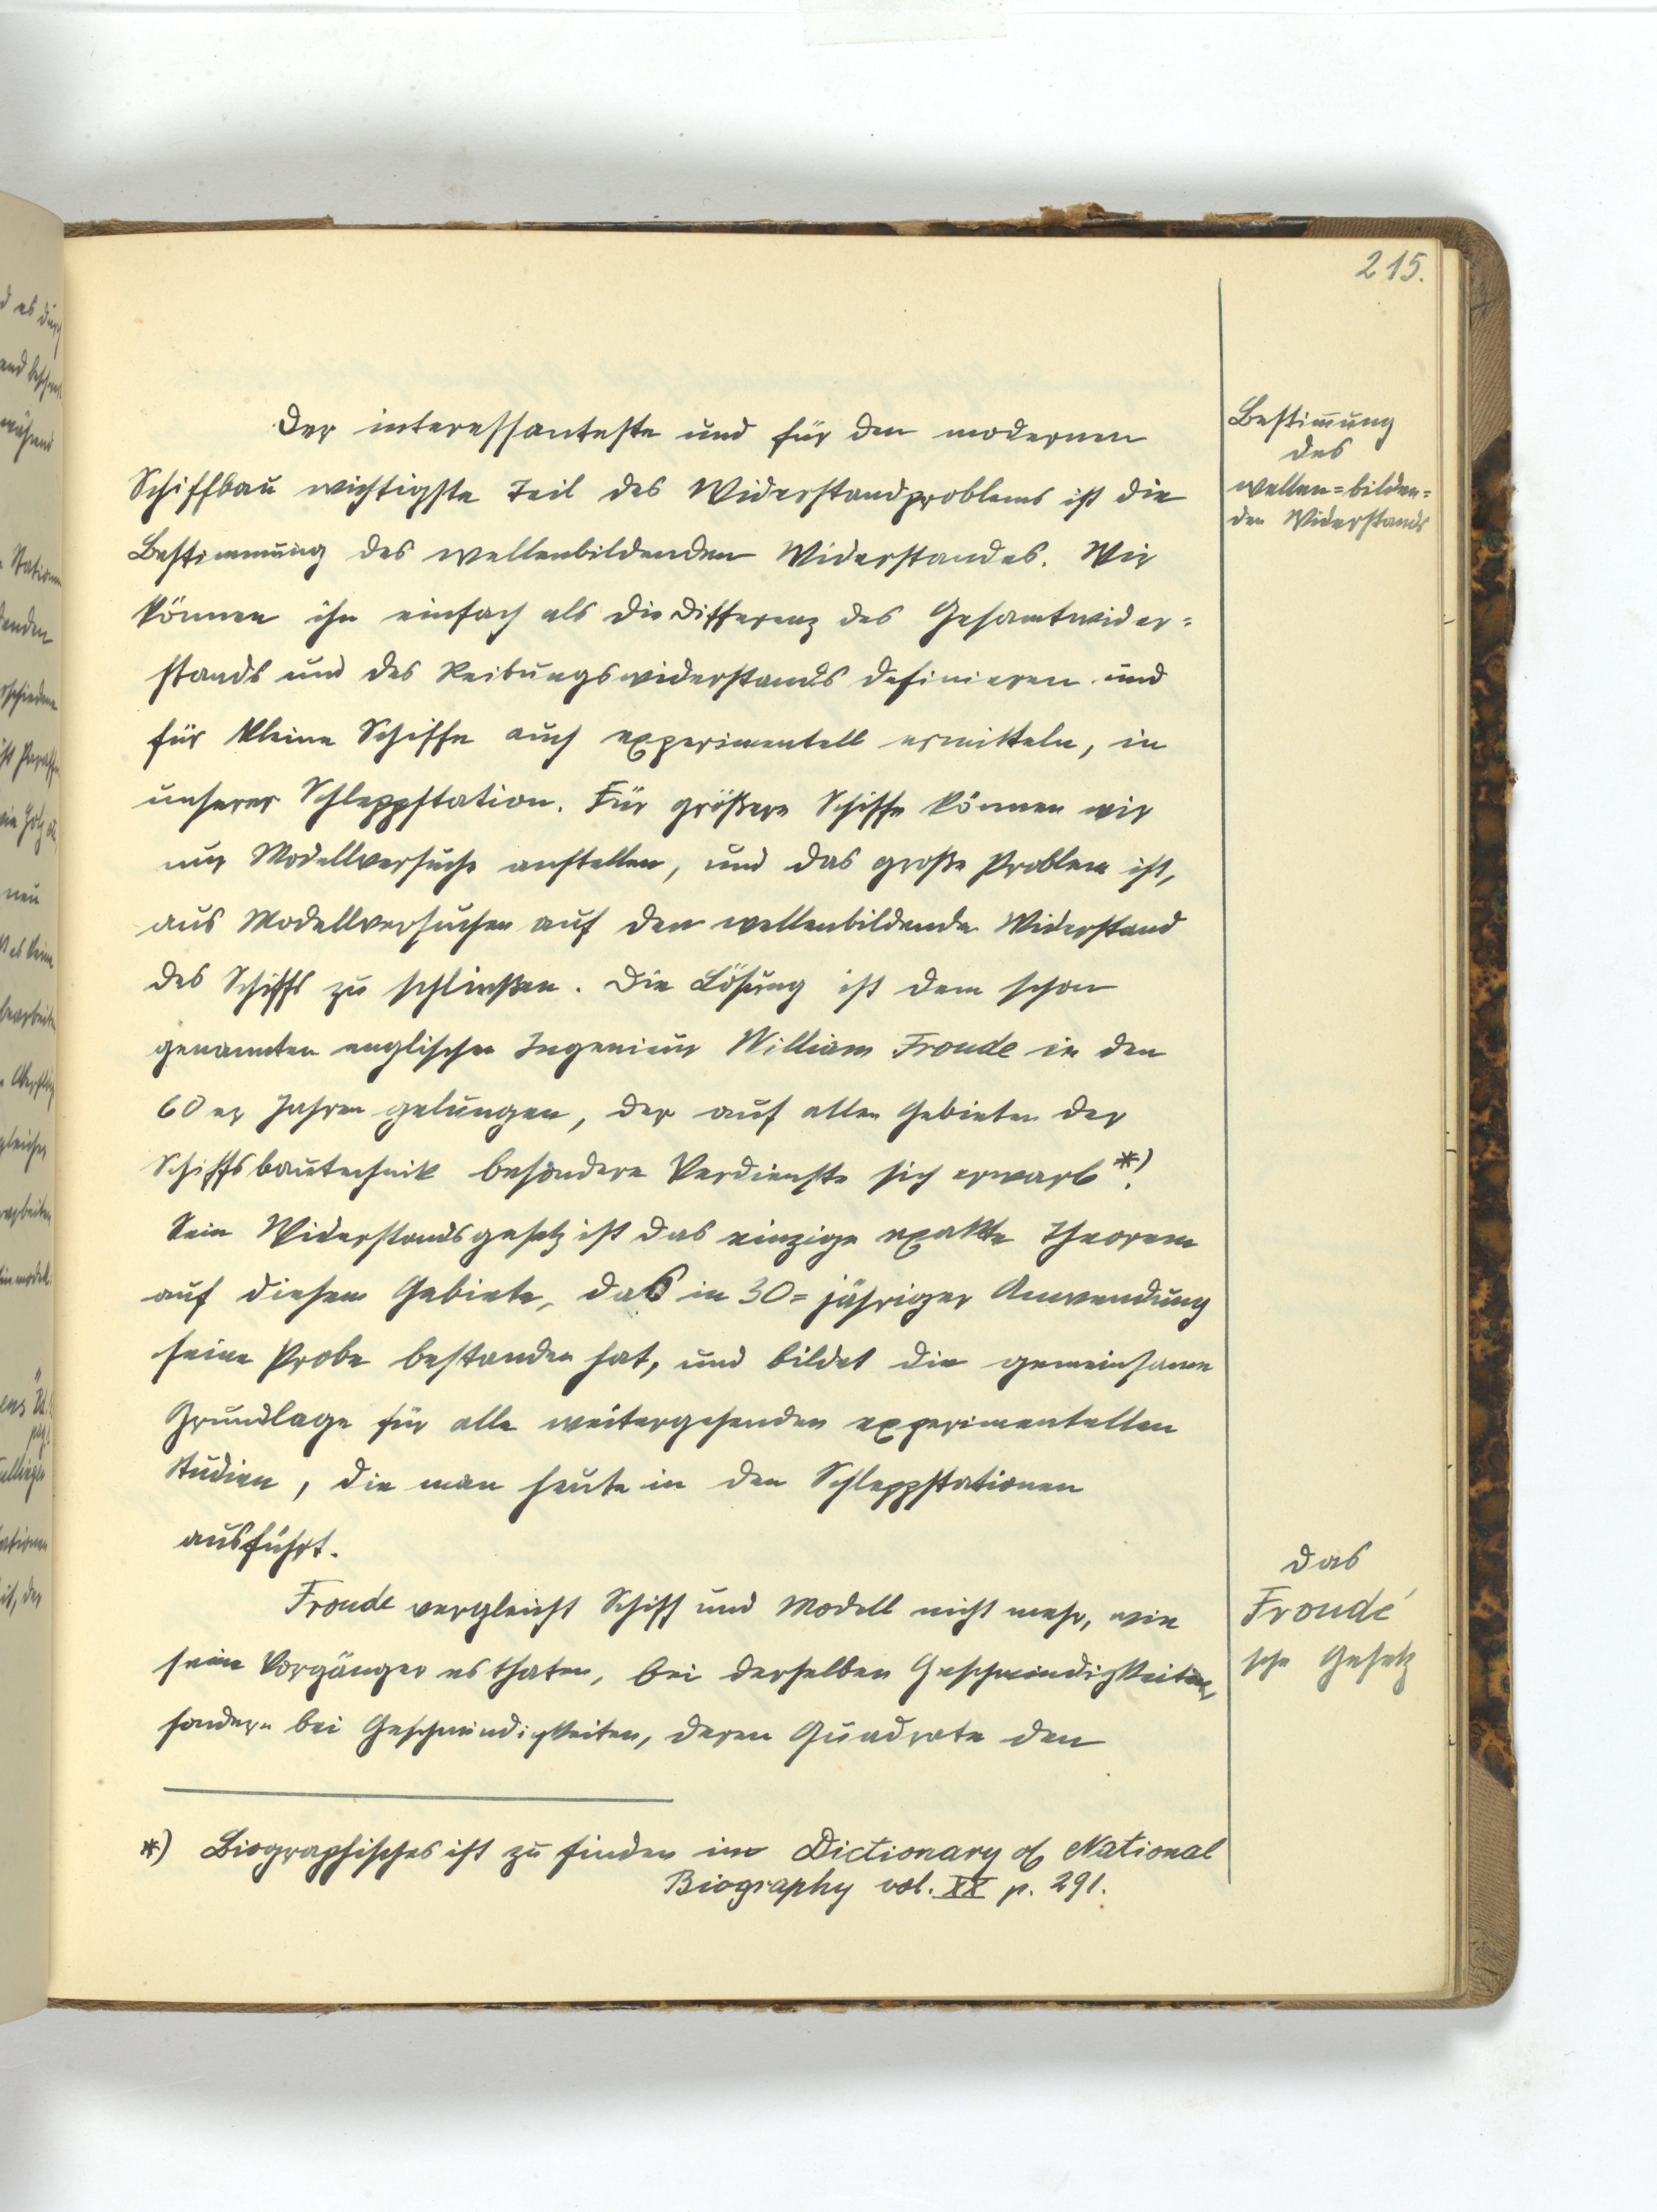 215.
Der interessanteste und für den modernen
Schiffbau wichtigste Teil des Widerstandproblems ist die
Bestimmung des wellenbildenden Widerstandes. Wir
können ihn einfach als die Differenz des Gesamtwider=
stands und des Reibungswiderstands definieren und
für kleine Schiffe auch experimentell ermitteln, in
unserer Schleppstation. Für größere Schiffe können wir
nur Modellversuche anstellen, und das große Problem ist,
aus Modellversuchen auf den wellenbildenden Widerstand
des Schiffs zu schließen. Die Lösung ist dem schon
genannten englischen Ingenieur William Froude in den
60er Jahren gelungen, der auf allen Gebieten der
Schiffsbautechnik besondere Verdienste sich erwarb*).
Sein Widerstandsgesetz ist das einzige exakte Theorem
auf diesem Gebiete, das in 30=jähriger Anwendung
seine Probe bestanden hat, und bildet die gemeinsame
Grundlage für alle weitergehenden experimentellen
Studien, die man heute in den Schleppstationen
ausführt.
Froude vergleicht Schiff und Modell nicht mehr, wie
seine Vorgänger es thaten, bei derselben Geschwindigkeiten,
sondern bei Geschwindigkeiten, deren Quadrate den
*) Biographisches ist zu finden im Dictionary of National
Biography vol. XX p. 291.
Bestim̄ung
des
wellen=bilden=
den Widerstands
das
Froude'
sche Gesetz